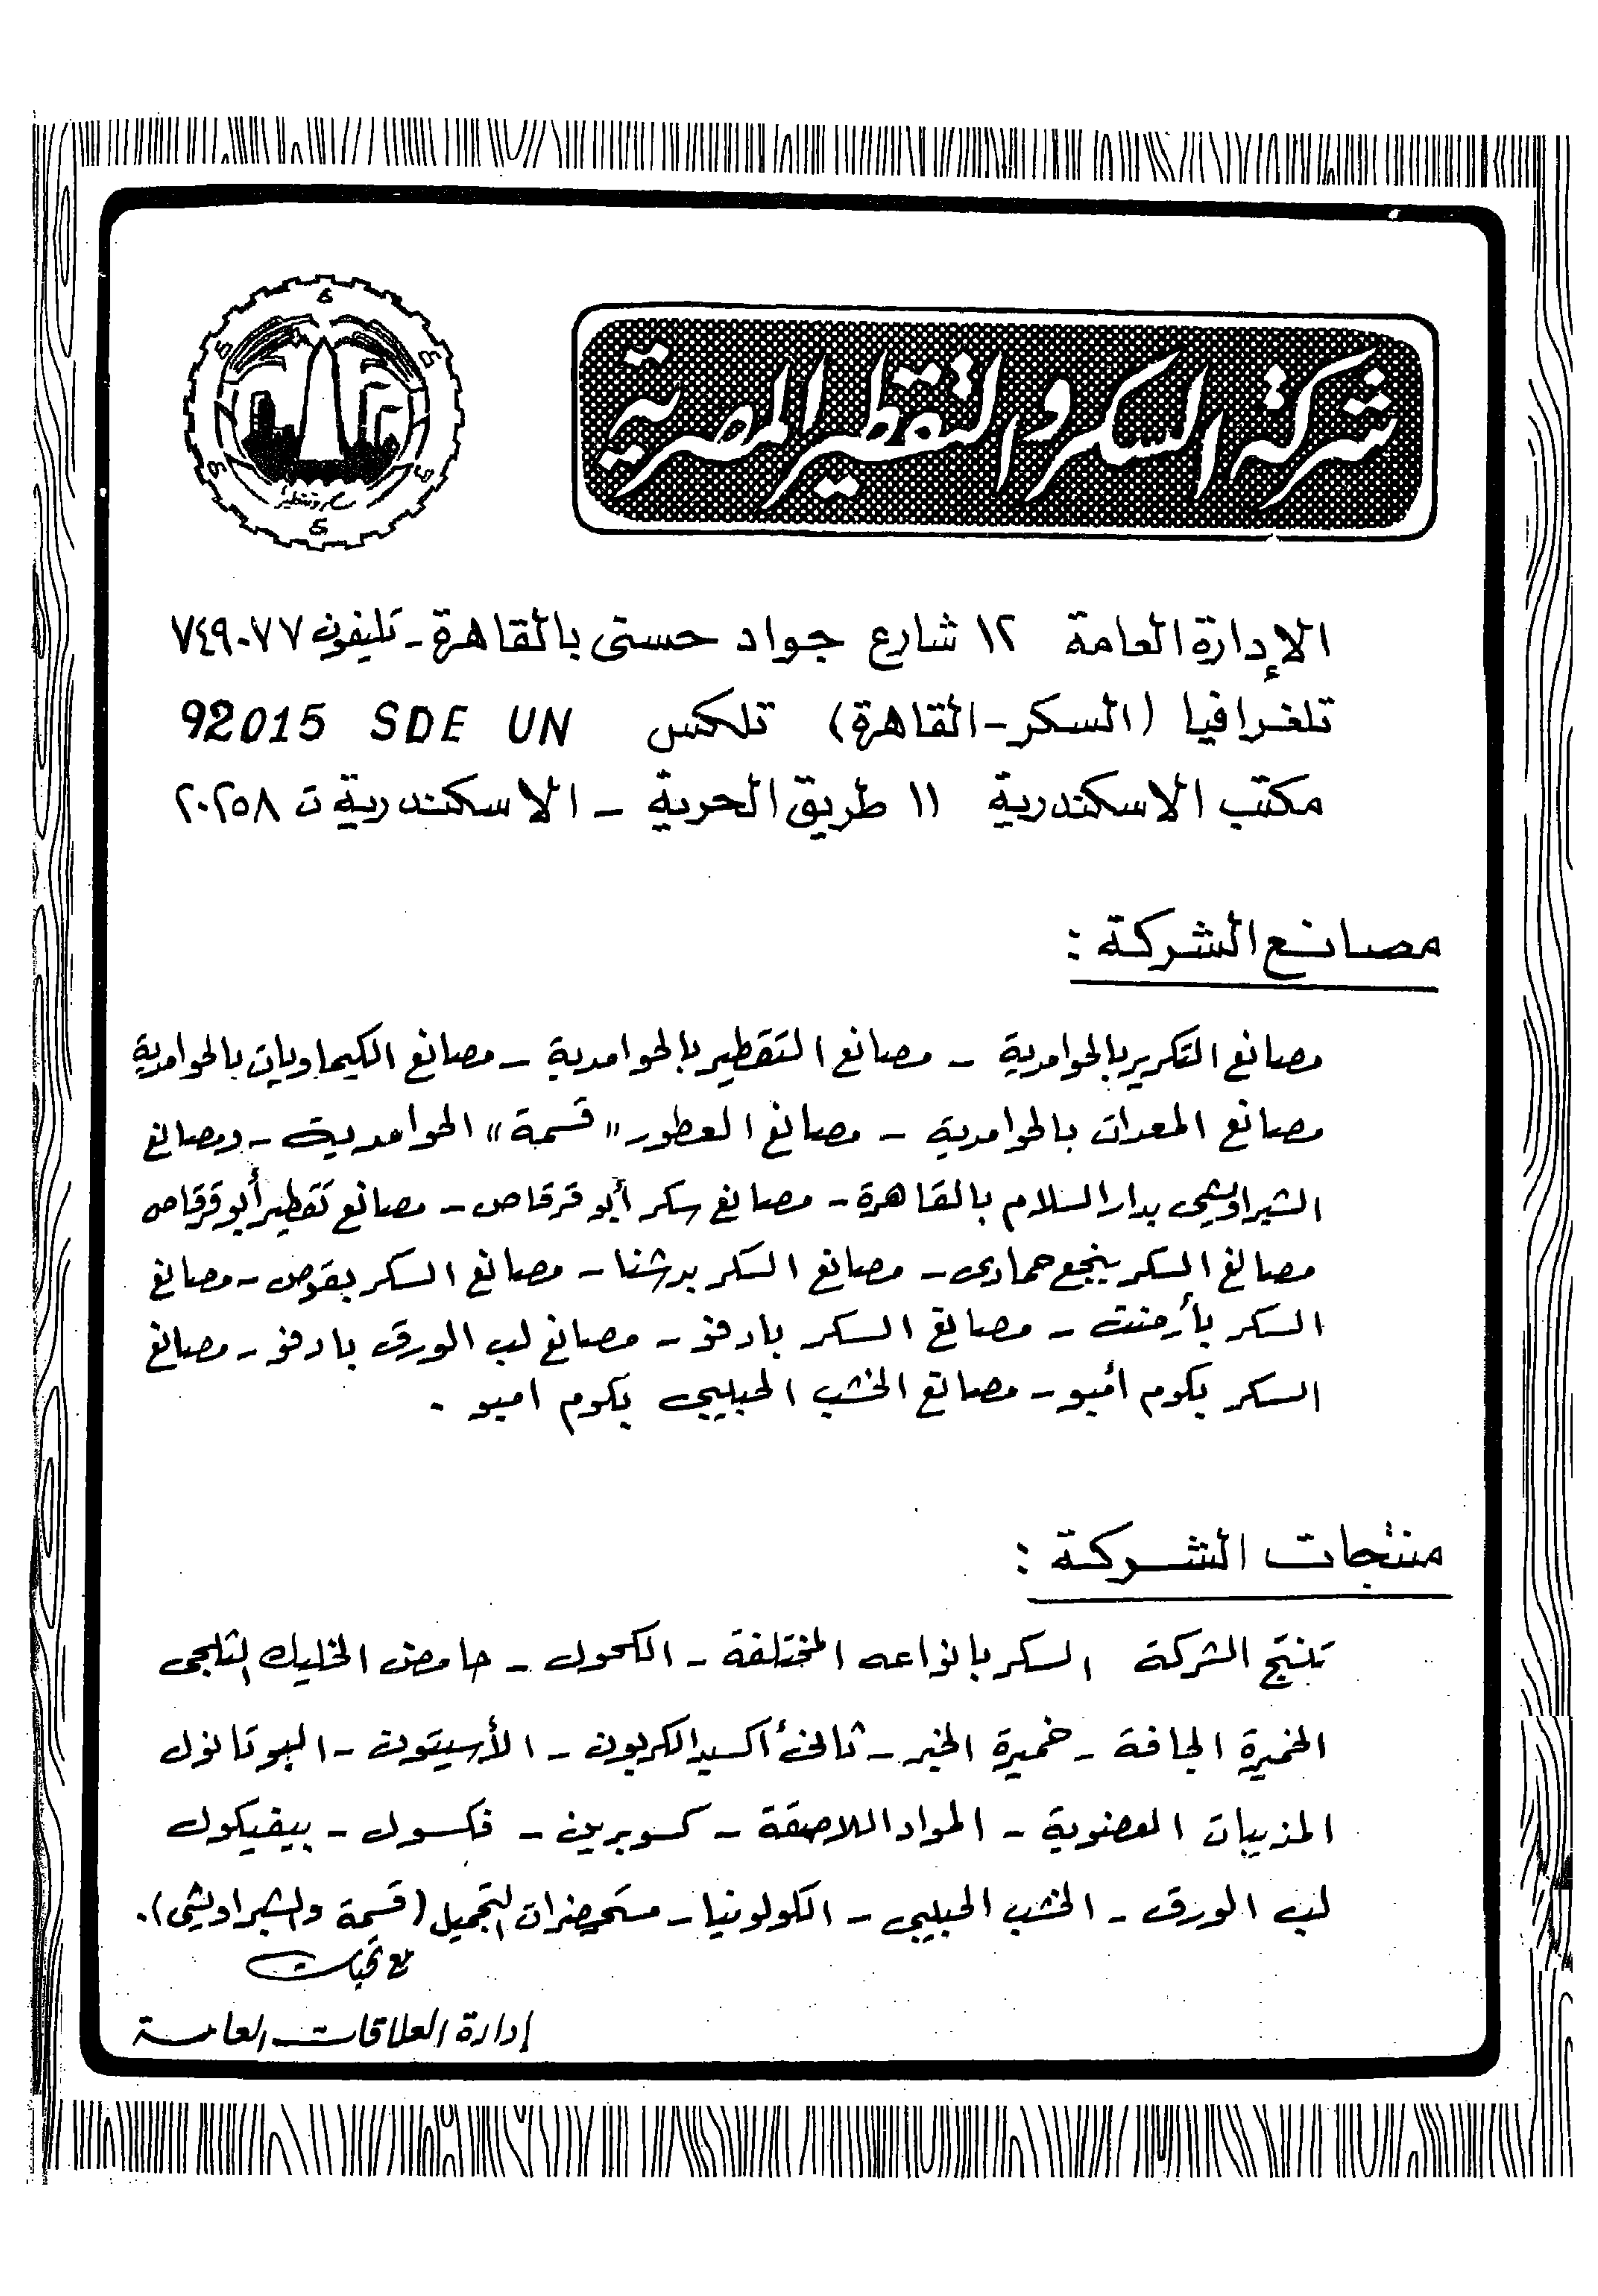 شركة السكر والتقطير المصرية
الإدارة العامة ١٢ شارع جواد حسنى بالقاهرة - تليفون ٧٤٩٠٧٧
تلغرافيا (السكر - القاهرة) تلكس 92015 SDE UN
مكتب الاسكندرية ١١ طريق الحرية - الاسكندرية ت ٢٠٢٥٨
مصانع الشركة :
مصانع التكرير بالحوامدية - مصانع التقطير بالحوامدية - مصانع الكيماويات بالحوامدية
مصانع المعدات بالحوامدية - مصانع العطور "قسمة" الحوامدية - ومصانع
الشبراويشى بدار السلام بالقاهرة - مصانع سكر أبو قرقاص - مصانع تقطير أبو قرقاص
مصانع السكر بنجع حمادى - مصانع السكر بدشنا - مصانع السكر بقوص - مصانع
السكر بأرمنت - مصانع السكر بادفو - مصانع لب الورق بادفو - مصانع
السكر بكوم أمبو - مصانع الخشب الحبيبى بكوم امبو .
منتجات الشركة :
تنتج الشركة السكر بانواعه المختلفة - الكحول - حامض الخليك الثلجى
الخميرة الجافة - خميرة الخبز - ثانى أكسيد الكربون - الأسيتون - البوتانول
المذيبات العضوية - المواد اللاصقة - كسوبرين - فكسول - بيفيكول
لب الورق - الخشب الحبيبى - الكولونيا - مستحضرات التجميل (قسمة والشبراويشى).
مع تحيات
إدارة العلاقات العامة